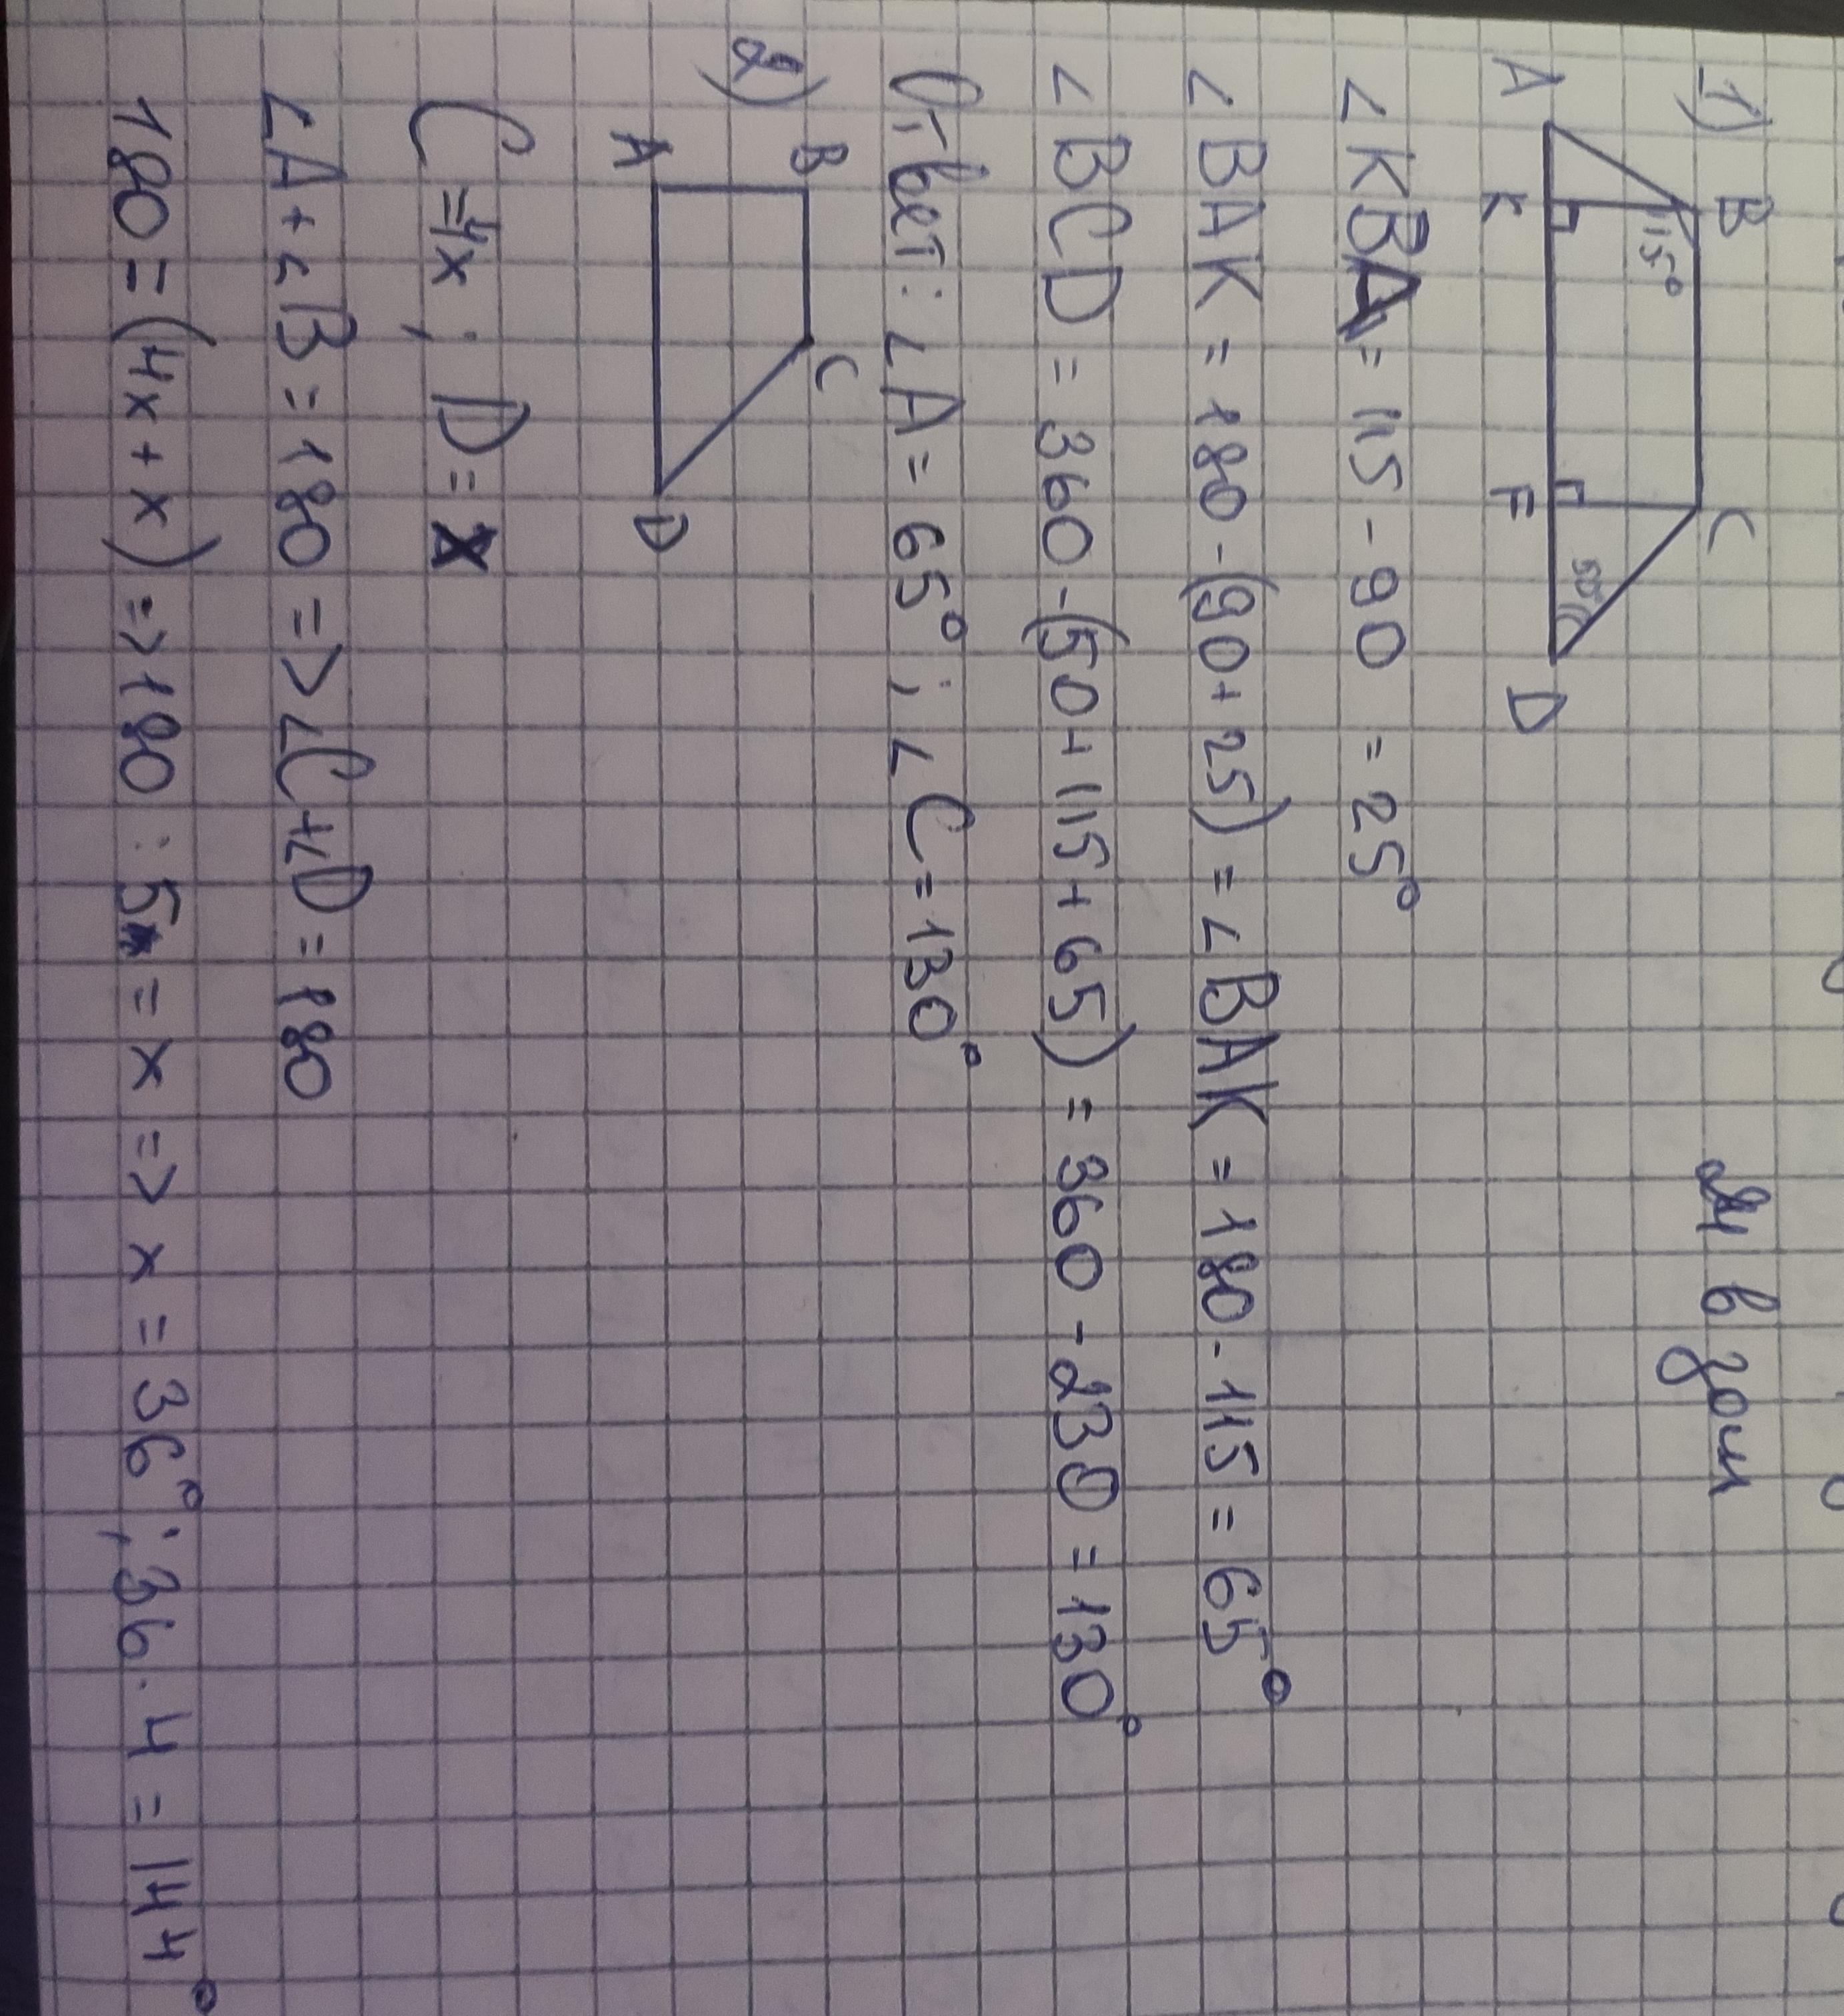 1)
B
C
115°
50°
A
K
F
D
∠KBA = 115 - 90 = 25°
∠BAK = 180 - (90 + 25) = ∠BAK = 180 - 115 = 65°
∠BCD = 360 - (50 + 115 + 65) = 360 - 230 = 130°
Ответ: ∠A = 65°; ∠C = 130°
2)
B
C
A
D
C = 4x ; D = x
∠A + ∠B = 180 => ∠C + ∠D = 180
180 = (4x + x) => 180 : 5 = x => x = 36° ; 36 · 4 = 144°